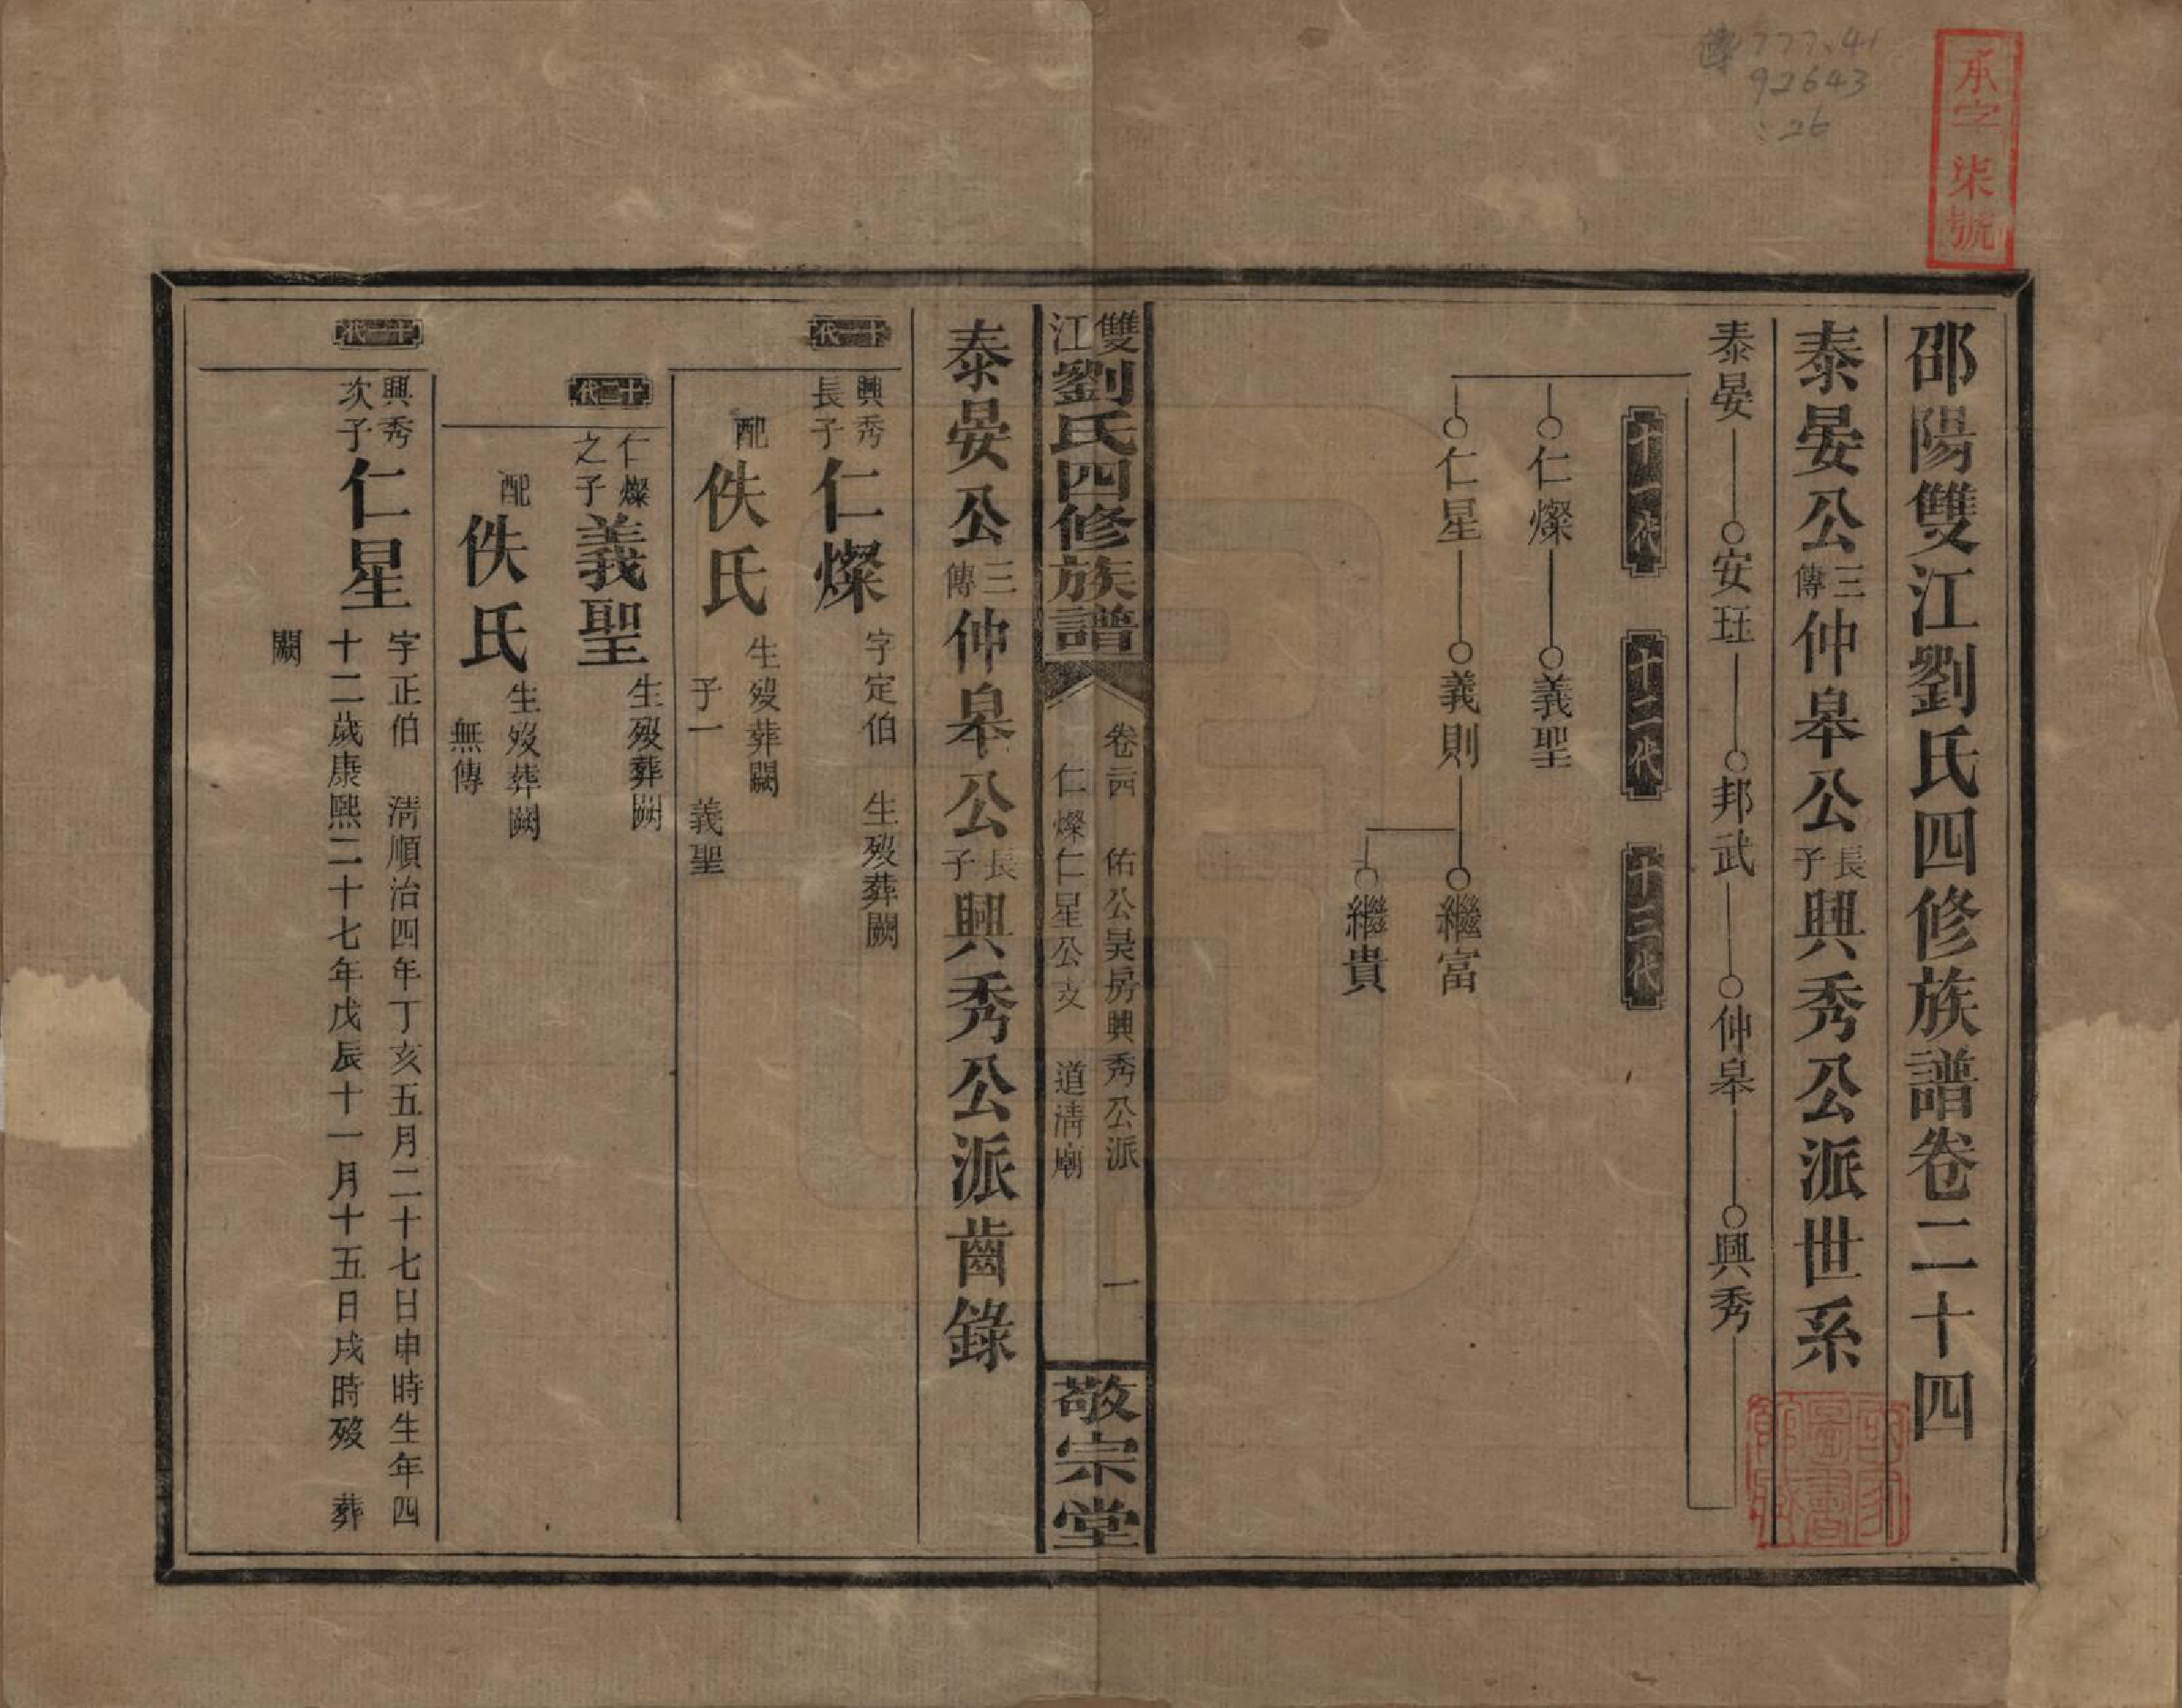 傳777.41
92643
:26
承字柒號
邵陽雙江劉氏四修族譜卷二十四
泰晏公三傳仲皋公長子興秀公派世系
泰晏 安玨 邦武 仲皋 興秀
十一代 十二代 十三代
仁燦 義聖
仁星 義則 繼富
繼貴
雙江劉氏四修族譜
卷二四 佑公昊房興秀公派 一
仁燦仁星公支 道清廟
敬宗堂
泰晏公三傳仲皋公長子興秀公派齒錄
十一代
興秀長子仁燦 字定伯 生歿葬闕
配佚氏 生歿葬闕
子一 義聖
十二代
仁燦之子義聖 生歿葬闕
配佚氏 生歿葬闕
無傳
十一代
興秀次子仁星 字正伯 清順治四年丁亥五月二十七日申時生年四
十二歲康熙二十七年戊辰十一月十五日戌時歿 葬
闕